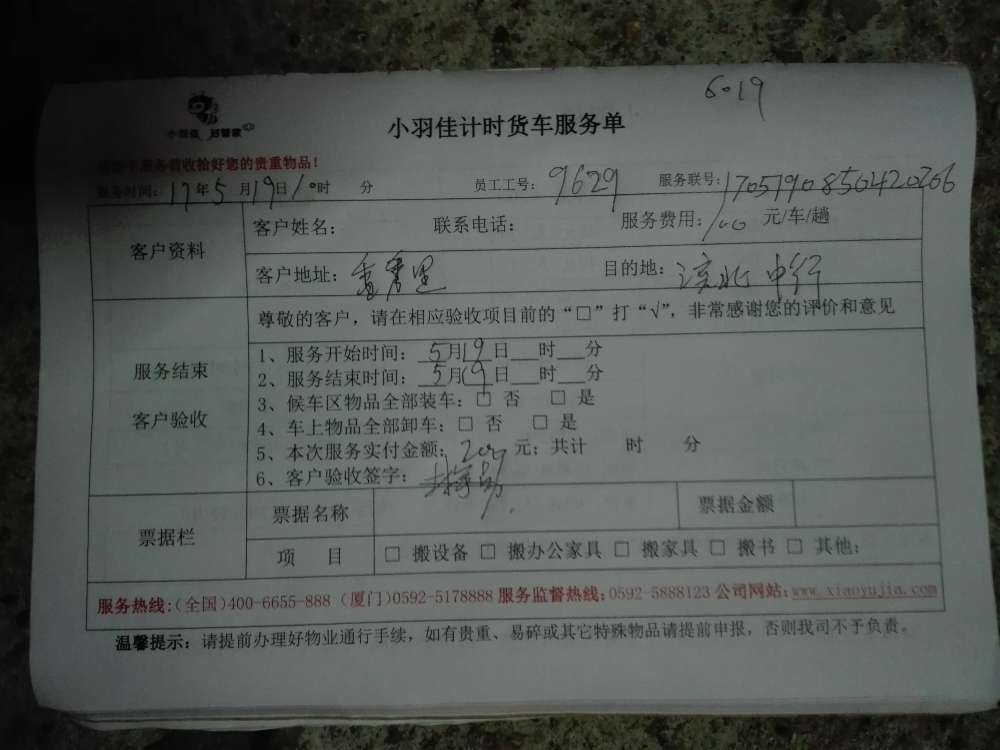 6019
小羽佳 好管家
小羽佳计时货车服务单
服务前收拾好您的贵重物品！
服务时间：17年5月19日10时 分 员工工号：9629 服务联号：1705190850420266
客户资料
客户姓名： 联系电话： 服务费用：100 元/车/趟
客户地址： 里 目的地： 中行
尊敬的客户，请在相应验收项目前的“□”打“√”，非常感谢您的评价和意见
服务结束
客户验收
1、服务开始时间：5月19日___时___分
2、服务结束时间：5月19日___时___分
3、候车区物品全部装车：□ 否 □ 是
4、车上物品全部卸车：□ 否 □ 是
5、本次服务实付金额：200元；共计 时 分
6、客户验收签字：
票据栏
票据名称 票据金额
项 目 □ 搬设备 □ 搬办公家具 □ 搬家具 □ 搬书 □ 其他：
服务热线：（全国）400-6655-888（厦门）0592-5178888 服务监督热线：0592-5888123 公司网站：www.xiaoyujia.com
温馨提示：请提前办理好物业通行手续，如有贵重、易碎或其它特殊物品请提前申报，否则我司不予负责。